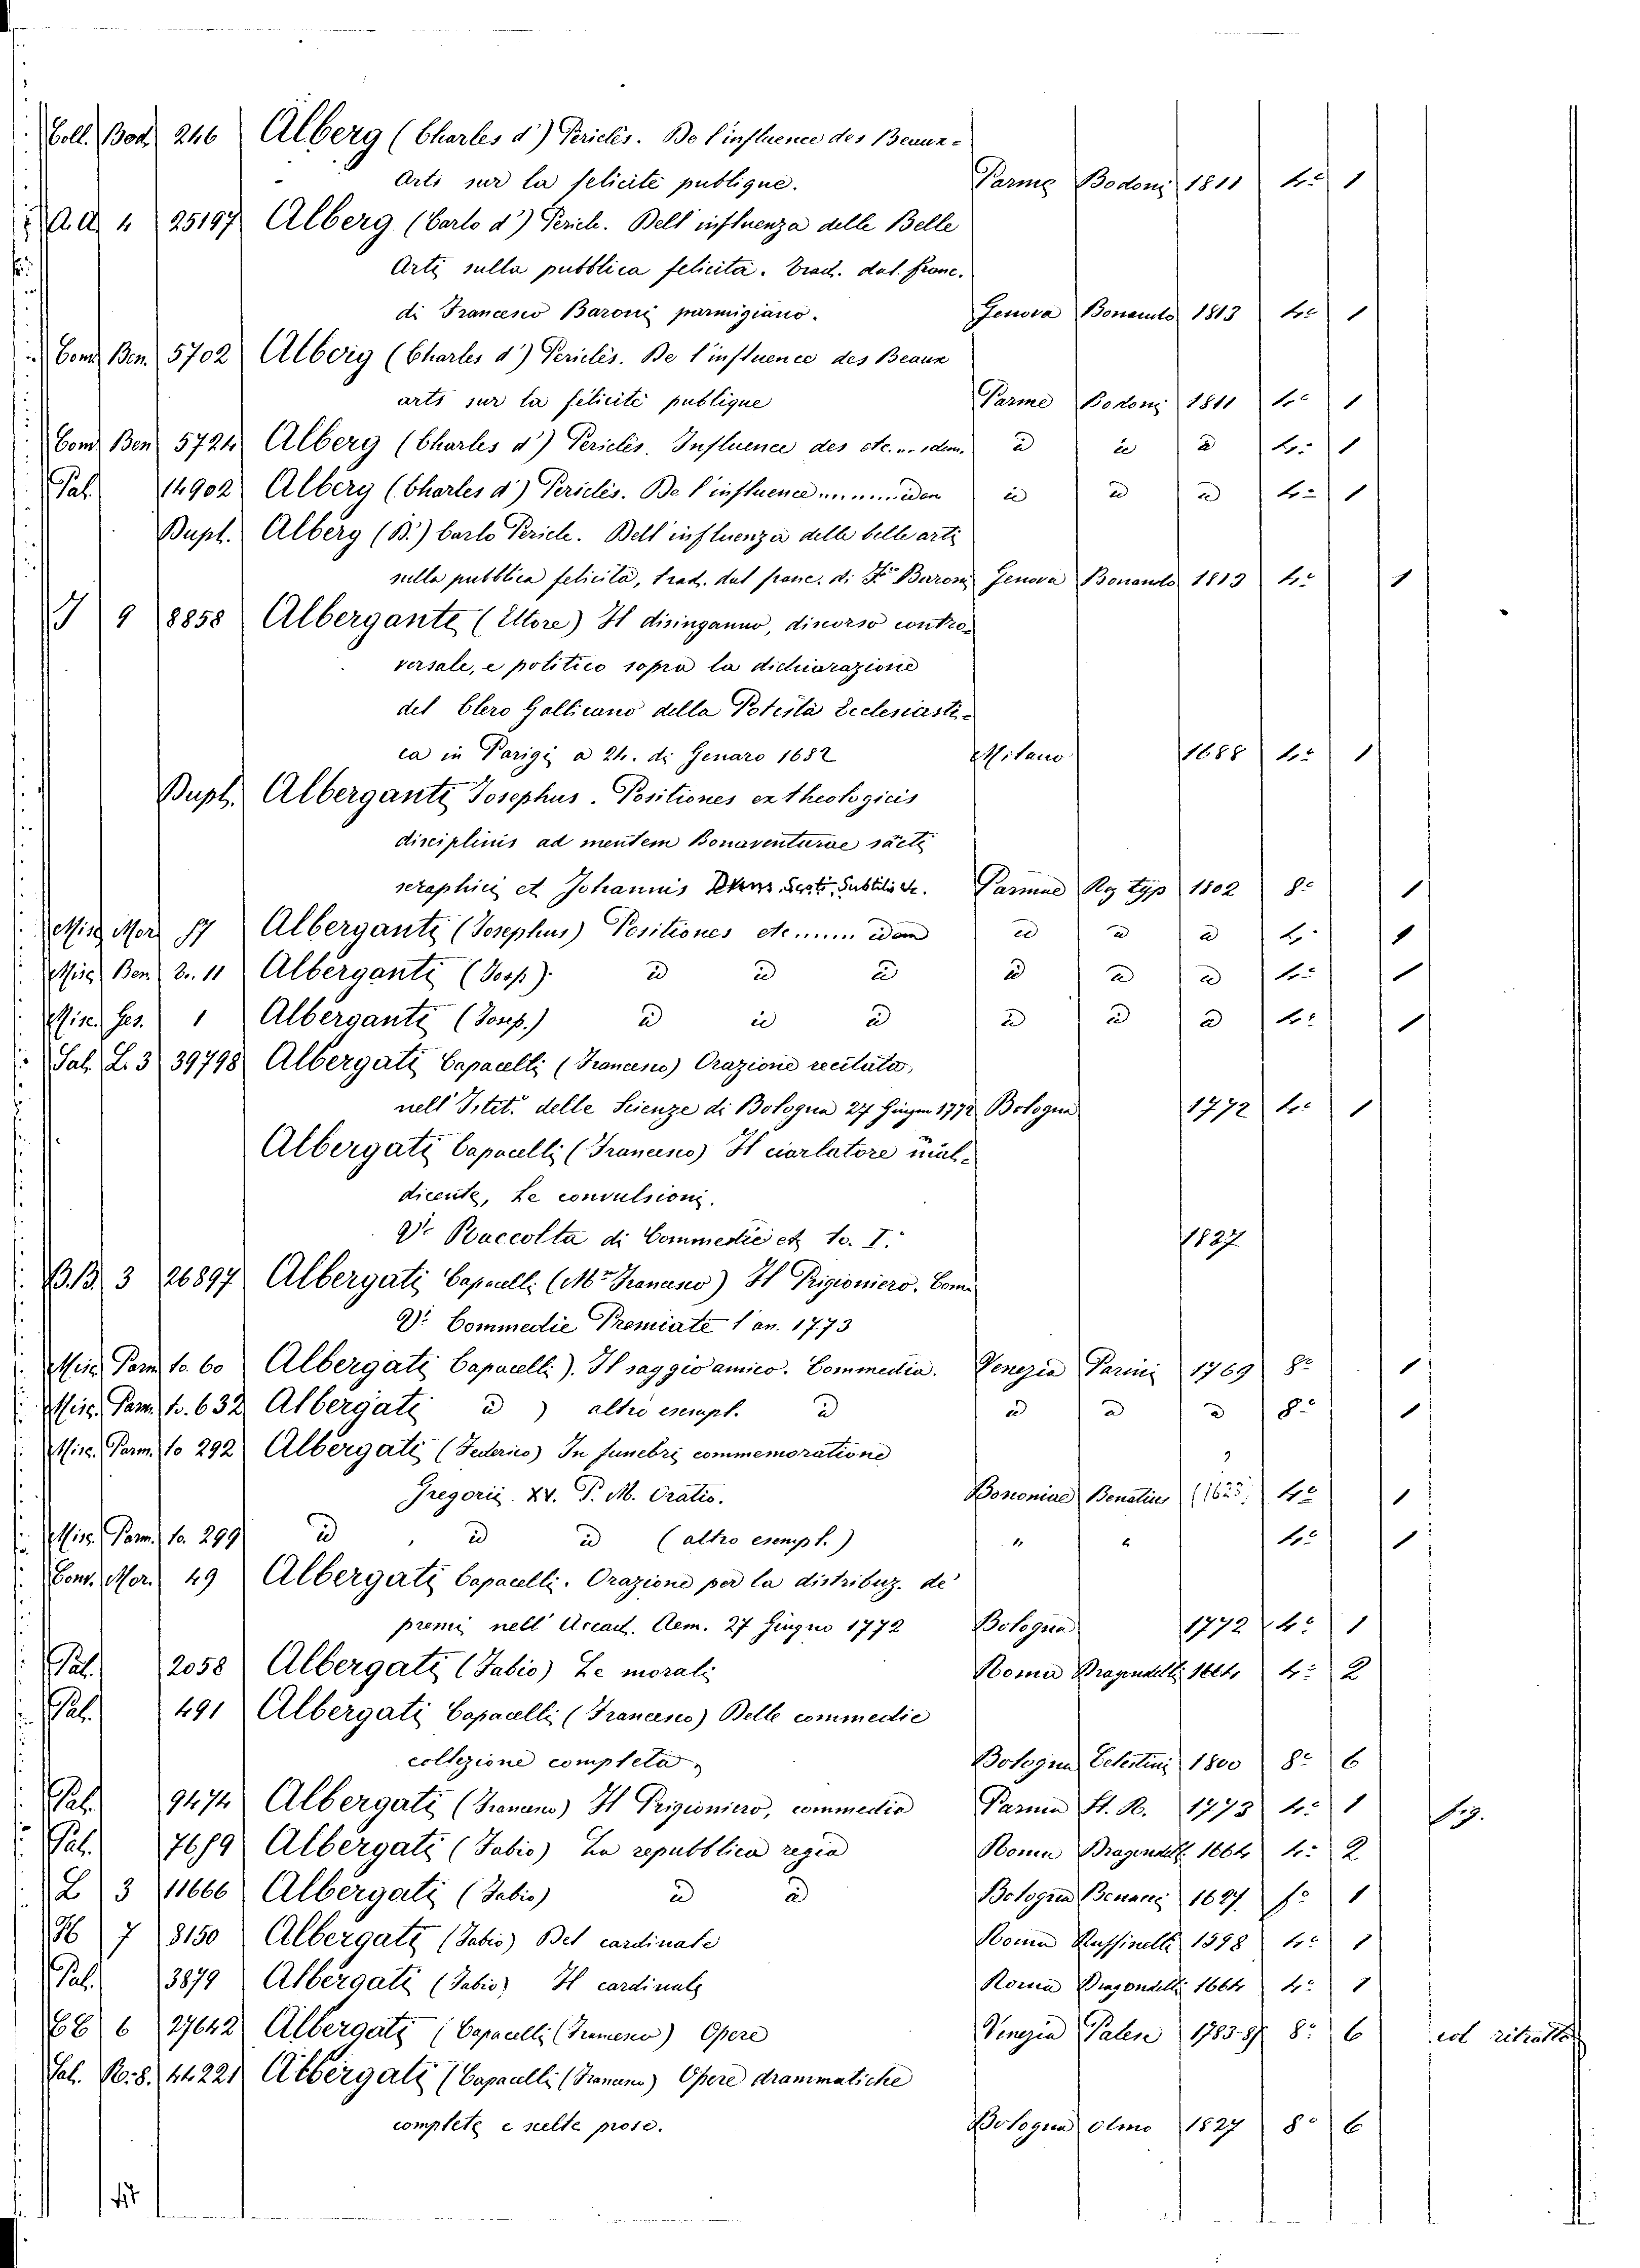 Coll. Bod. 246 Alberg (Charles d') Periclès. De l'influence des Beaux-
Arts sur la felicité publique. Parme Bodoni 1811 4.° 1
A.A 4 25197 Alberg (Carlo d') Pericle. Dell'influenza delle Belle
Arti sulla pubblica felicità. Trad. dal franc.
di Francesco Baroni parmigiano. Genova Bonaudo 1813 4.° 1
Cons. Ben. 5702 Alberg (Charles d') Periclès. De l'influence des Beaux
arts sur la félicité publique Parme Bodoni 1811 4.° 1
Cons. Ben 5724 Alberg (Charles d') Periclès. Influence des etc.... idem. id id id 4.° 1
Pal. 14902 Alberg (Charles d') Periclès. De l'influence ........ idem id id id 4.° 1
Dupl. Alberg (D.) Carlo Pericle. Dell'influenza delle belle arti
sulla pubblica felicità, trad. dal franc. di F.co Baroni Genova Bonaudo 1813 4.° 1
9 8858 Albergante (Ettore) Il disinganno, discorso contro-
versale, e politico sopra la dichiarazione
del Clero Gallicano della Potestà Ecclesiasti-
ca in Parigi a 24. di Genaro 1682 Milano 1688 4.° 1
Dupl. Alberganti Josephus. Positiones ex theologicis
disciplinis ad mentem Bonaventurae sācti
seraphici et Johannis Scoti, Subtilis etc. Parmae Reg typ 1802 8.° 1
Misc Mor 57 Alberganti (Josephus) Positiones etc ...... idem id id id 4.° 1
Misc Ben 2. 11 Alberganti (Josep). id id id id id id 4.° 1
Misc. Ges. 1 Alberganti (Josep.) id id id id id id 4.° 1
Sal. L. 3 39798 Albergati Capacelli (Francesco) Orazione recitata,
nell'Istit.° delle Scienze di Bologna 27 Giugno 1772 Bologna 1772 4.° 1
Albergati Capacelli (Francesco) Il ciarlatore mal-
dicente, Le convulsioni.
V. Raccolta di Commedie etc to. I. 1827
B.B. 3 26897 Albergati Capacelli (M.r Francesco) Il Prigioniero. Com.
V. Commedie Premiate l'an. 1773
Misc Parm to. 60 Albergati Capacelli). Il saggio amico. Commedia. Venezia Parini 1769 8.° 1
Misc. Parm. to. 632 Albergati id ) altro esempl. id id id id 8.° 1
Misc. Parm. to 292 Albergati (Federico) In funebri commemoratione
Gregorii. XV. P. M. Oratio. Bononiae Benatius (1623?) 4.° 1
Misc. Parm. to. 299 id id id (altro esempl.) " " 4.° 1
Cons. Mor. 49 Albergati Capacelli. Orazione per la distribuz. de'
premi nell'Accad. Clem. 27 Giugno 1772 Bologna 1772 4.° 1
Pal. 2058 Albergati (Fabio) Le morali Roma Dragondelli 1664 4.° 2
Pal. 491 Albergati Capacelli (Francesco) Delle commedie
collezione completa, Bologna Celestini 1800 8.° 6
Pal. 9474 Albergati (Francesco) Il Prigioniero, commedia Parma St. R. 1773 4.° 1 fig.
Pal. 7689 Albergati (Fabio) La repubblica regia Roma Dragondelli 1664 4.° 2
L 3 11666 Albergati (Fabio) id id Bologna Benacci 1627 f.° 1
H 7 8150 Albergati (Fabio) Del cardinale Roma Ruffinelli 1598 4.° 1
Pal. 3879 Albergati (Fabio) Il cardinale Roma Dragondelli 1664 4.° 1
CC 6 27642 Albergati (Capacelli (Francesco) Opere Venezia Palese 1783-87 8.° 6 col ritratto
Sal. R. 8. 44221 Albergati (Capacelli (Francesco) Opere drammatiche
complete e scelte prose. Bologna Olmo 1827 8.° 6